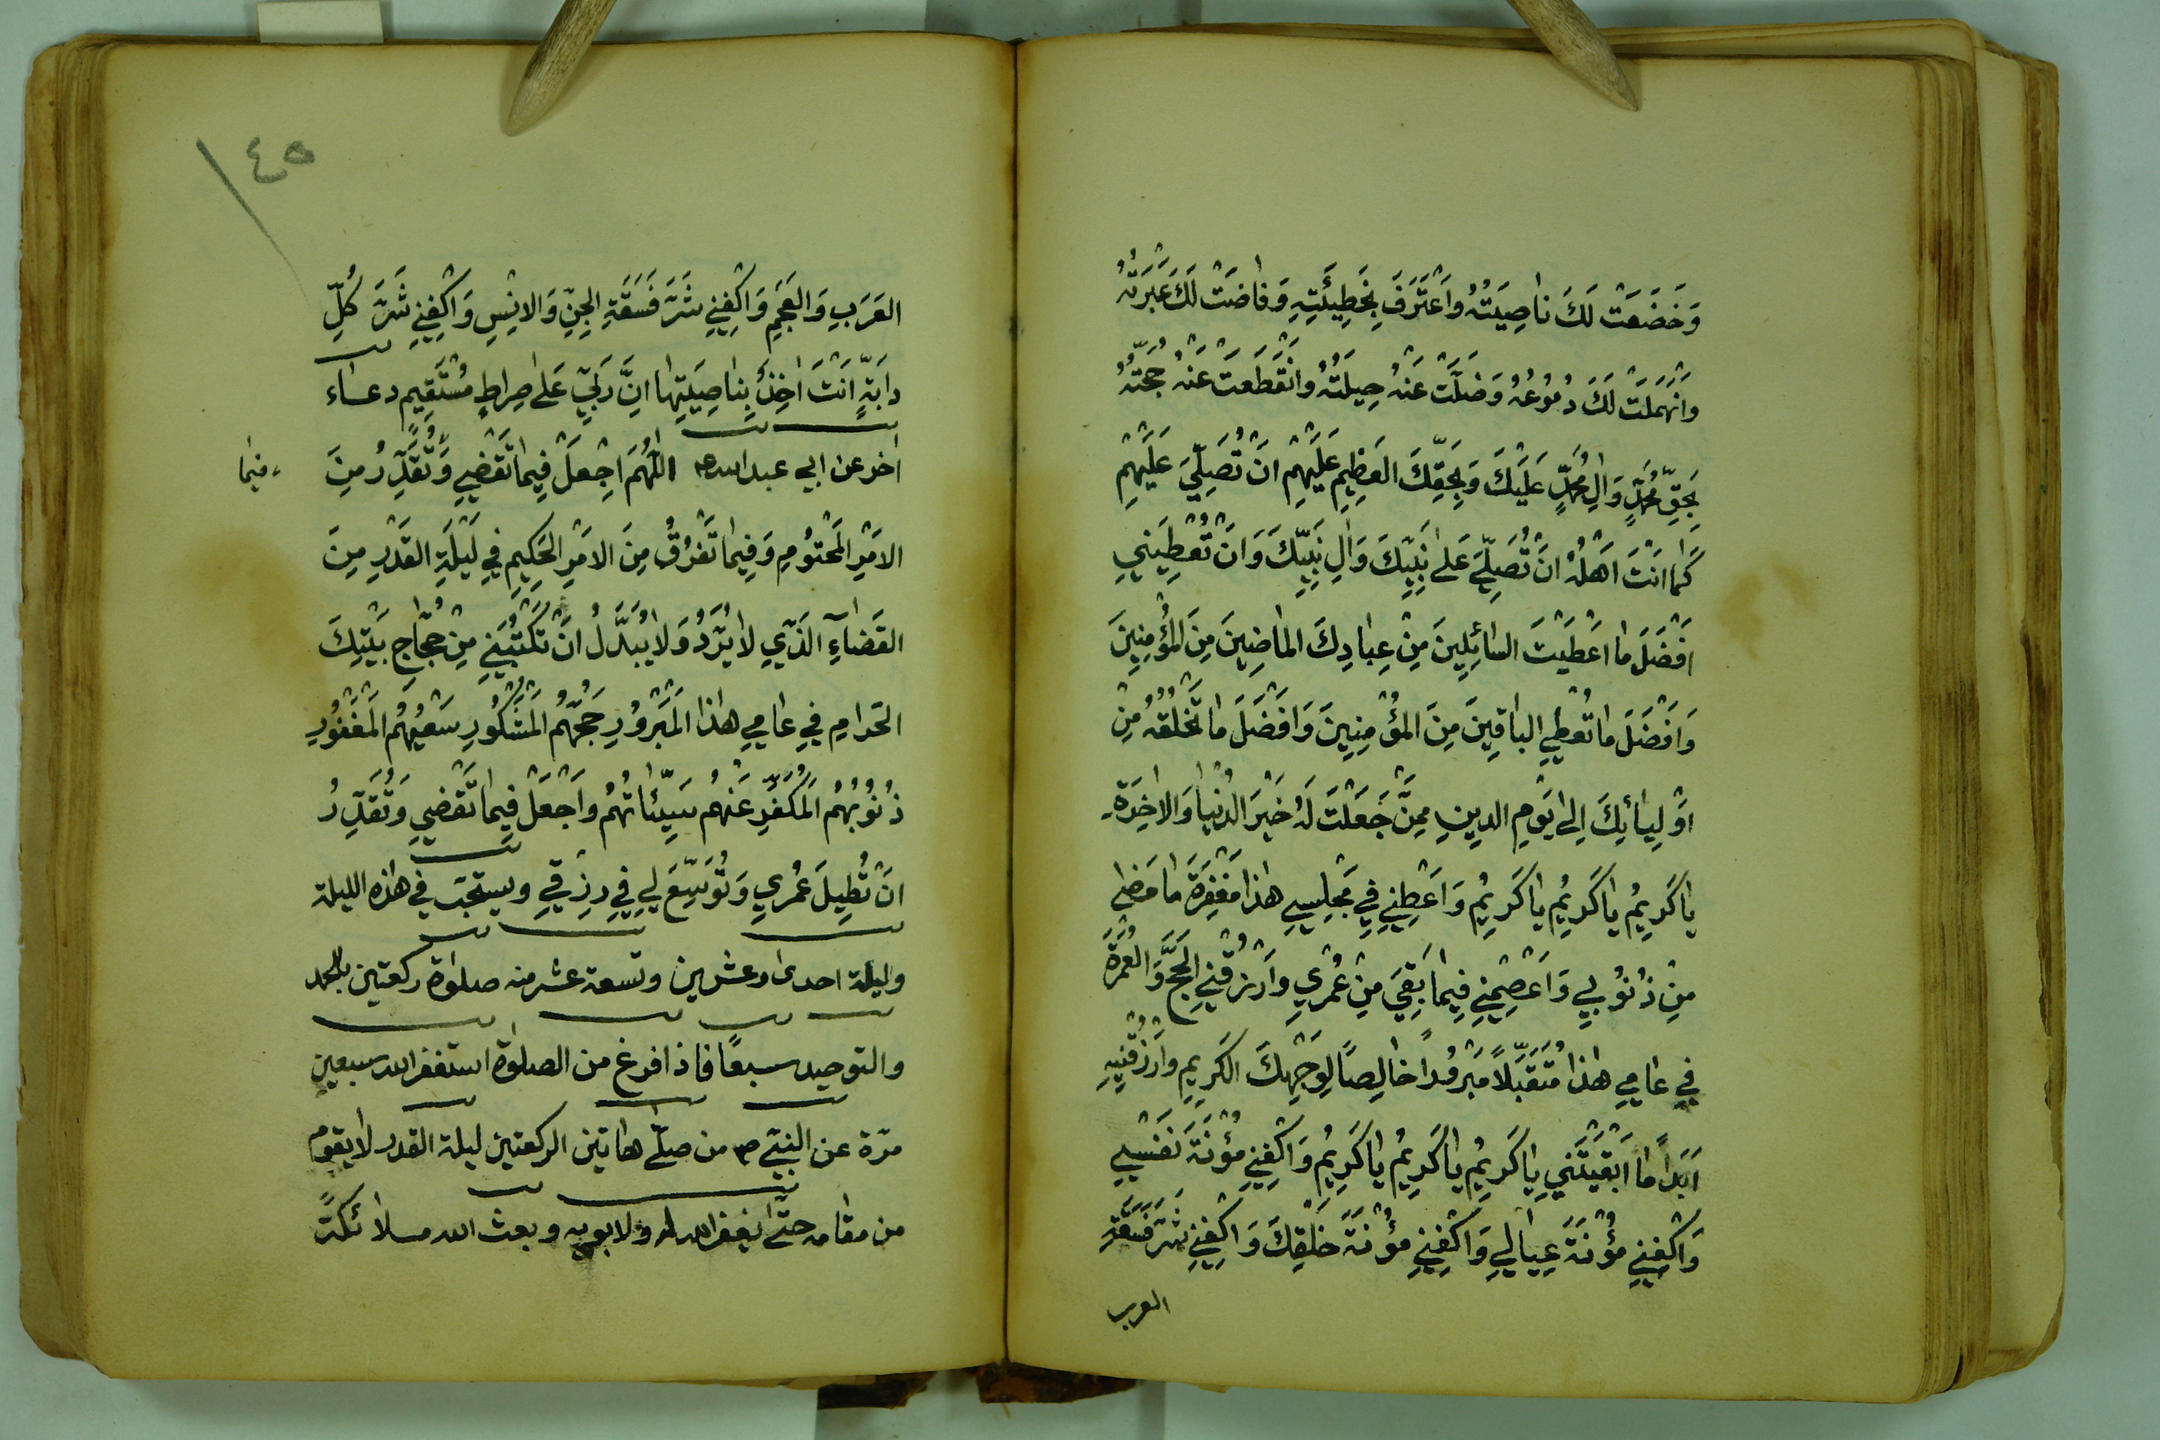 وَخَضَعَتْ لَكَ نٰاصِيَتُهُ وَاعْتَرَفَ بِخَطِيئَتِهِ وَفٰاضَتْ لَكَ عَبْرَتُهُ
وَانْهَمَلَتْ لَكَ دُمُوعُهُ وَضَلَّتْ عَنْهُ حِيلَتُهُ وَانْقَطَعَتْ عَنْهُ حُجَّتُهُ
بِحَقِّ مُحَمَّدٍ وَاٰلِ مُحَمَّدٍ عَلَيْكَ وَبِحَقِّكَ العَظِيمِ عَلَيْهِمْ اَنْ تُصَلِّيَ عَلَيْهِمْ
كَمٰا اَنْتَ اَهْلُهُ اَنْ تُصَلِّيَ عَلىٰ نَبِيِّكَ وَاٰلِ نَبِيِّكَ وَاَنْ تُعْطِيَنِي
اَفْضَلَ مٰا اَعْطَيْتَ السٰائِلِينَ مِنْ عِبٰادِكَ المٰاضِينَ مِنَ المُؤْمِنِينَ
وَاَفْضَلَ مٰا تُعْطِي البٰاقِينَ مِنَ المُؤْمِنِينَ وَاَفْضَلَ مٰا تَخْلُقُهُ مِنْ
اَوْلِيٰائِكَ اِلىٰ يَوْمِ الدِينِ مِمَّنْ جَعَلْتَ لَهُ خَيْرَ الدُنْيٰا وَالاٰخِرَةِ
يٰا كَرِيمُ يٰا كَرِيمُ يٰا كَرِيمُ وَاَعْطِنِي فِي مَجْلِسِي هٰذٰا مَغْفِرَةَ مٰا مَضىٰ
مِنْ ذُنُوبِي وَاعْصِمْنِي فِيمٰا بَقِيَ مِنْ عُمْرِي وَارْزُقْنِي الحَجَّ وَالعُمْرَةَ
فِي عٰامِي هٰذٰا مُتَقَبَّلاً مَبْرُوراً خٰالِصاً لِوَجْهِكَ الكَرِيمِ وَارْزُقْنِيهِ
اَبَداً مٰا اَبْقَيْتَنِي يٰا كَرِيمُ يٰا كَرِيمُ يٰا كَرِيمُ وَاكْفِنِي مَؤُنَةَ نَفْسِي
وَاكْفِنِي مَؤُنَةَ عِيٰالِي وَاكْفِنِي مَؤُنَةَ خَلْقِكَ وَاكْفِنِي شَرَّ فَسَقَةِ
العرب
٤٥
العَرَبِ وَالعَجَمِ وَاكْفِنِي شَرَّ فَسَقَةِ الجِنِّ وَالاِنْسِ وَاكْفِنِي شَرَّ كُلِّ
دٰابَّةٍ اَنْتَ اٰخِذٌ بِنٰاصِيَتِهٰا اِنَّ رَبِّي عَلىٰ صِرٰاطٍ مُسْتَقِيمٍ دعاء
اخر عن ابي عبدالله ع اللّٰهُمَّ اجْعَلْ فِيمٰا تَقْضِي وَتُقَدِّرُ مِنَ
فيما
الاَمْرِ المَحْتُومِ وَفِيمٰا تَفْرُقُ مِنَ الاَمْرِ الحَكِيمِ فِي لَيْلَةِ القَدْرِ مِنَ
القَضٰاءِ الَّذِي لاٰ يُرَدُّ وَلاٰ يُبَدَّلُ اَنْ تَكْتُبَنِي مِنْ حُجّٰاجِ بَيْتِكَ
الحَرٰامِ فِي عٰامِي هٰذٰا المَبْرُورِ حَجُّهُمُ المَشْكُورِ سَعْيُهُمُ المَغْفُورِ
ذُنُوبُهُمُ المُكَفَّرِ عَنْهُمْ سَيِّئٰاتُهُمْ وَاجْعَلْ فِيمٰا تَقْضِي وَتُقَدِّرُ
اَنْ تُطِيلَ عُمْرِي وَتُوَسِّعَ لِي فِي رِزْقِي ويستحبّ في هٰذه الليلة
وليلة احدى وعشرين وتسعة عشر منه صلوٰة ركعتين بالحمد
والتوحيد سبعًا فاذا فرغ من الصلوٰة استغفر الله سبعين
مرّة عن النبيّ ص من صلّى هٰاتين الركعتين ليلة القدر لا يقوم
من مقامه حتّى يغفر الله له ولابويه وبعث الله ملائكةً